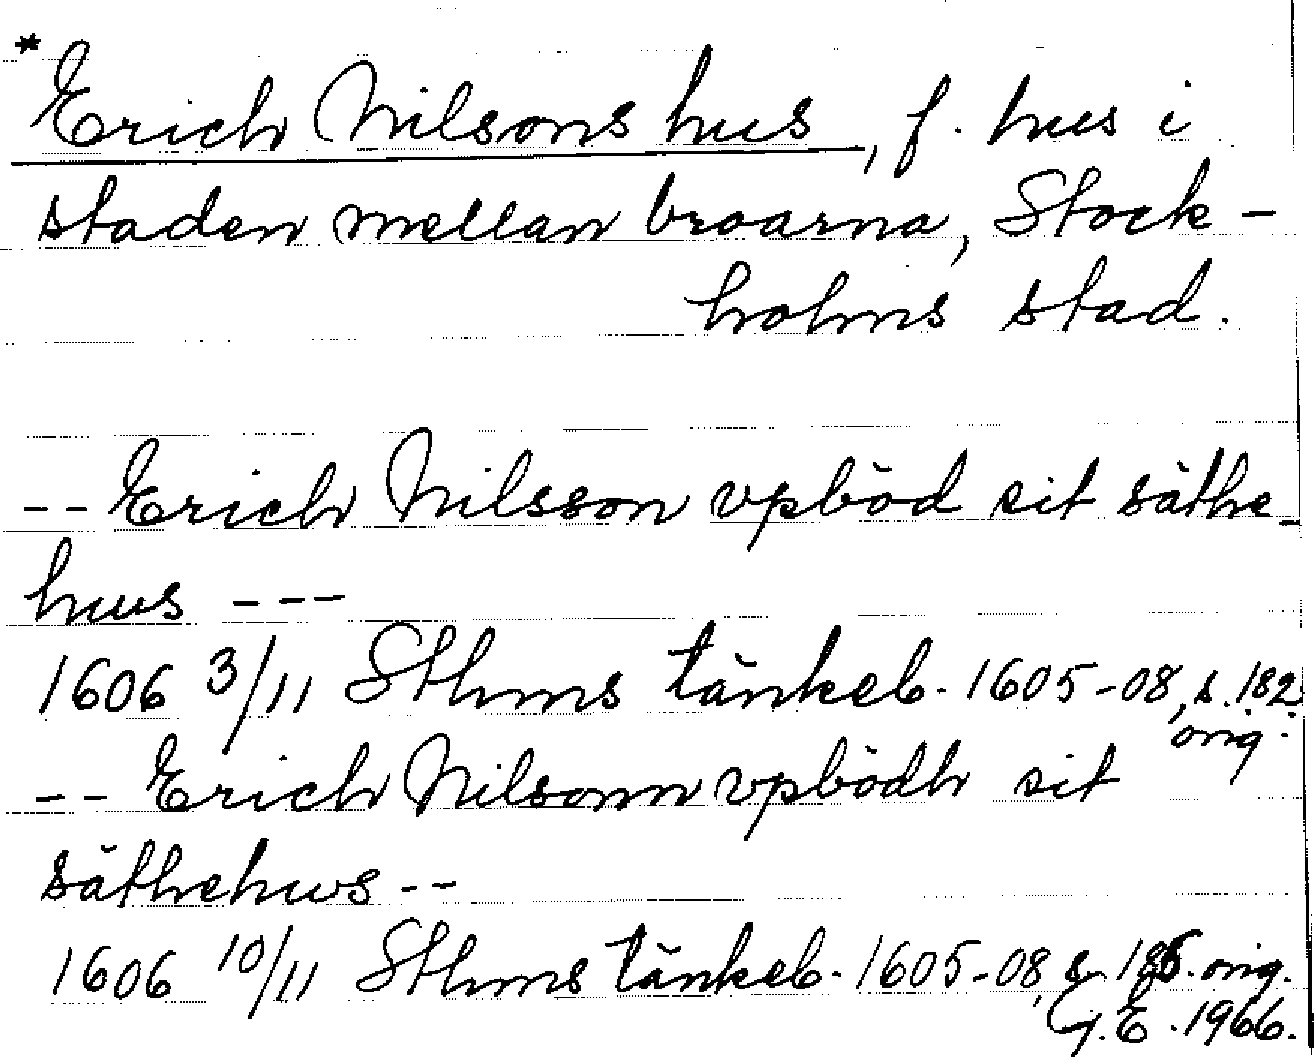 *Erich Nilsons hus, f. hus i
staden mellan broarna, Stock-
holms stad.
-- Erich Nilsson vpböd sit säthe-
hws ---
1606 3/11 Sthms tänkeb. 1605-08, s. 182
orig.
-- Erich Nilsonn vpbödh sit
säthehws --
1606 10/11 Sthms tänkeb. 1605-08, s. orig.
G.E. 1966.